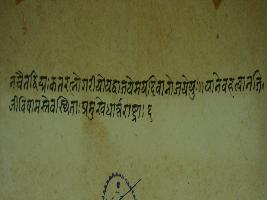 नचैतद्विद्मःकतरन्नोगरीयोयद्वाजयेमयदिवानोजयेयुः॥यानेवहत्वानजि
जीविषामस्तेवस्थिताःप्रमुखेधार्तराष्ट्राः ६